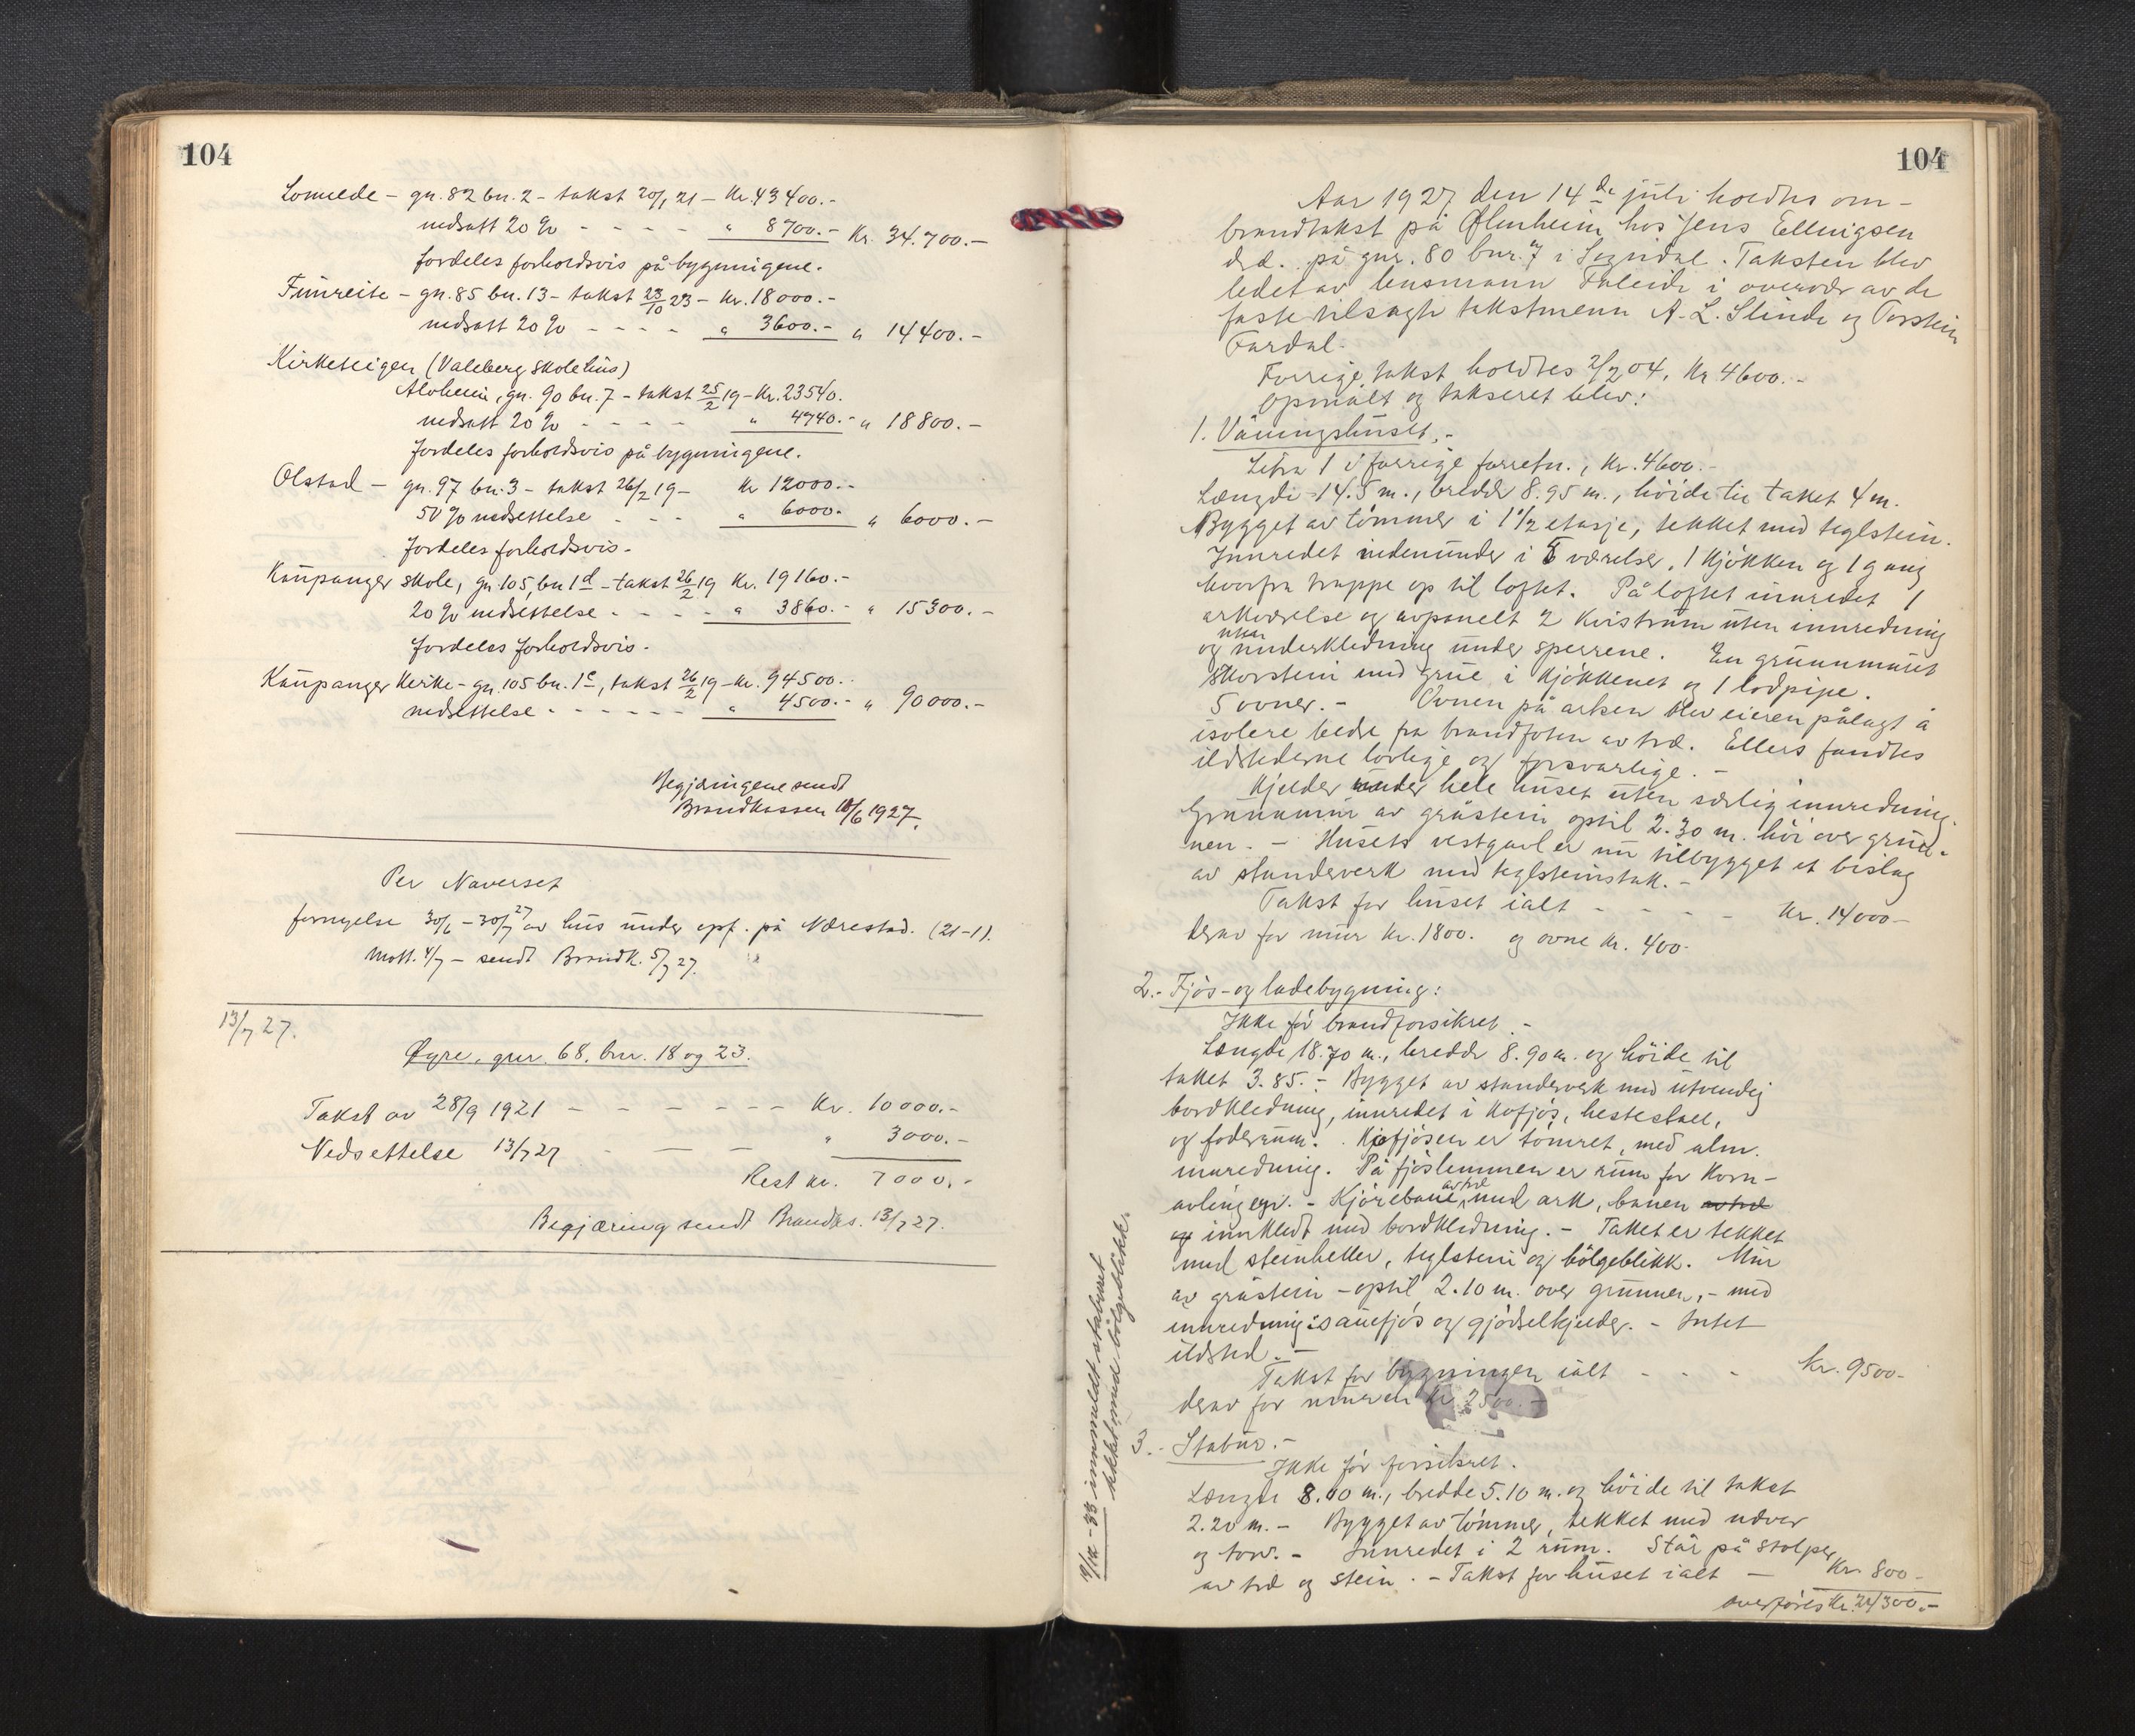 104
Lomelde - gn. 82 bn. 2 - takst 20/1 21 - Kr. 43400.-
nedsatt 20 % - - - - " 8700.- Kr. 34.700.-
fordeles forholdsvis på bygningene.
Fimreite - gn. 85 bn. 13 - takst 23/10 23 - Kr. 18000.-
nedsatt 20 % - - - - " 3600.- " 14400.-
Kirketeigen (Valeberg skolehus)
Alvheim, gn. 90 bn. 7 - takst 25/2 19 - Kr. 23540.
nedsatt 20 % - - - - " 4740.- " 18800.-
fordeles forholdsvis på bygningene.
Olstad - gn. 97 bn. 3 - takst 26/2 19 - Kr 12000.-
50 % nedsettelse - - - " 6000.- " 6000.-
fordeles forholdsvis.
Kaupanger skole, gn. 105, bn 1d - takst 26/2 19 Kr. 19160.-
20 % nedsettelse - - - - " 3860.- " 15300.-
fordeles forholdsvis.
Kaupanger Kirke - gn. 105 bn. 1e, takst 26/2 19 - Kr. 94500.-
nedsettelse - - - - - - " 4500.- " 90000.-
Begjæringene sendt
Brandkassen 10/6 1927.
Per Naverset
fornyelse 30/6 - 30/7 27 av hus under opf. på Nærestad. (21-1).
Mott. 4/7 - sendt Brandk. 5/7 27.
13/7 27.
Øyre, gnr. 68, bnr. 18 og 23.
Takst av 28/9 1921 - - - - - - Kr. 10000.-
Nedsettelse 13/7 27 - - - " 3000.-
Rest kr. 7000.-
Begjæring sendt Brandks. 13/7 27.
104
Aar 1927 den 14de juli holdtes om-
brandtakst på Ølmheim hos Jens Ellingsen
dsd. på gnr. 80 bnr. 7 i Sogndal. Taksten blev
ledet av lensmann Faleide i overvær av de
faste tilsagte takstmenn A. L. Slinde og Torstein
Fardal.
Forrige takst holdtes 2/2 04, Kr 4600.-
Opmålt og taksert blev:
1. Våningshuset.-
Litra 1 i forrige forretn., Kr. 4600.-
Længde 14.5 m., bredde 8.95 m., höide til taket 4 m.
Bygget av tömmer i 1 1/2 etasje, tekket med teglstein.
Innredet nedenunder i 5 værelser, 1 kjökken og 1 gang
hvorfra trappe op til loftet. På loftet innredet 1
arkværelse og avpanelt 2 kvistrum uten innredning
og uten underkledning under sperrene. En grunnmuret
skorstein med grue i kjökkenet og 1 lodpipe.
5 ovner. - Ovnen på arken blev eieren pålagt å
isolere bedre fra brandfoten av træ. Ellers fandtes
ildstederne lovlige og forsvarlige. -
Kjelder under hele huset uten særlig innredning.
Grunnmur av gråstein optil 2.30 m. höi over grun-
nen. - Husets vestgavl er nu tilbygget et bislag
av standerverk med teglsteinstak. -
Takst for huset ialt - - - - Kr. 14000-
derav for mur Kr. 1800. og ovne Kr. 400.
2.- Fjös- og ladebygning:
Ikke för brandforsikret. -
Længde 18.70 m., bredde 8.90 m. og höide til
taket 3.85. - Bygget av standerverk med utvendig
bordkledning, innredet i kofjös, hestestall,
og foderrum. Kofjösen er tömret, med alm.
innredning. På fjöslemmen er rum for korn-
avlingen. - Kjörebane av træ med ark, banen av træ
og innkledt med bordkledning. - Taket er tekket
med steinheller, teglstein og bölgeblikk. Mur
av gråstein - optil 2.10 m. over grunnen, - med
innredning: sauefjös og gjödselkjelder. - Intet
ildsted. -
Takst for bygningen ialt - - - Kr. 9500-
derav for muren Kr. 2500.-
3. - Stabur.-
Ikke för forsikret.
Længde 8.10 m., bredde 5.10 m. og höide til takst
2.20 m. - Bygget av tömmer, tekket med næver
og torv. - Innredet i 2 rum. Står på stolper
av træ og stein. - Takst for huset ialt - Kr. 800-
overföres Kr. 24300.-
innmeldt staburet
tekket med bölgeblikk.